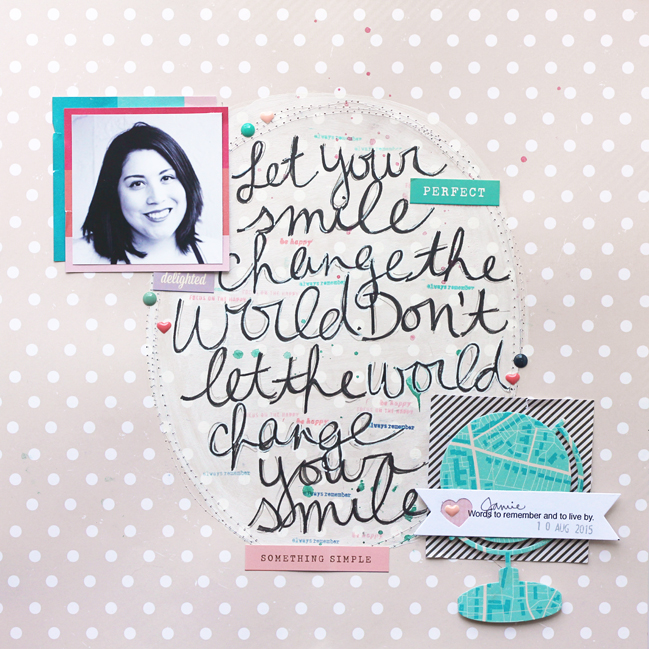 Let your
PERFECT
smile
change the
delighted
World. Don't
let the world
change
your
smile
Jamie
Words to remember and to live by.
10 AUG 2015
SOMETHING SIMPLE
always remember
be happy
always remember
be happy
be happy
always remember
always remember
always remember
always remember